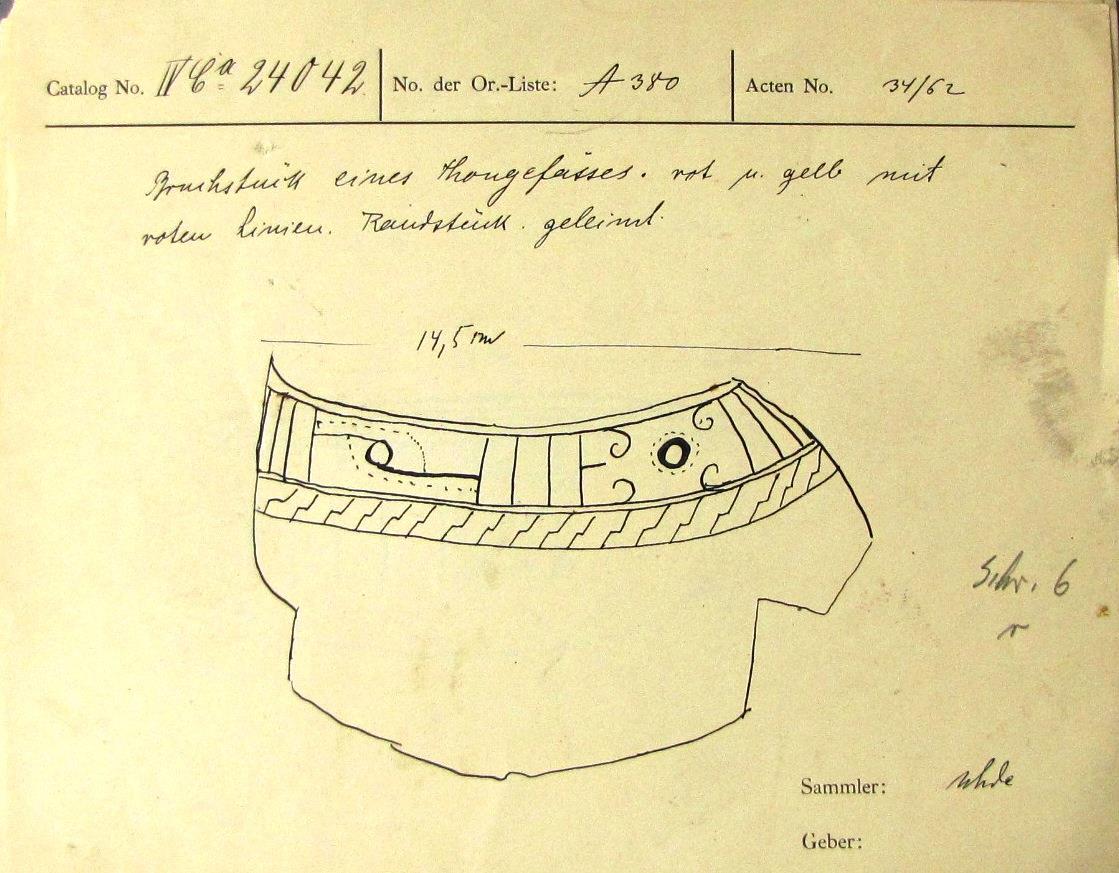 Catalog No. IV Ca 24042 No. der Or.-Liste: A 380 Acten No. 34/62
Bruchstück eines Thongefässes. rot u. gelb mit
roten Linien. Randstück. geleimt.
14,5 cm
Schr. 6
r
Sammler: Uhde
Geber: